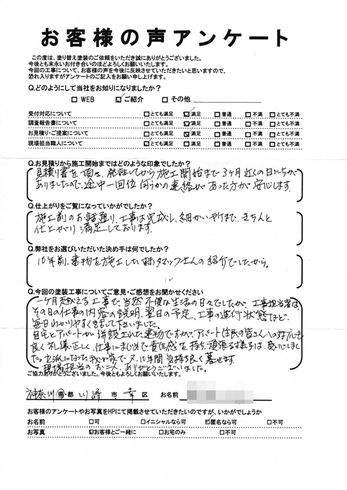 お客様の声アンケート
この度は、塗り替え塗装のご依頼をいただき誠にありがとうございました。
今後とも末永いお付き合いのほどよろしくお願いいたします。
今回の工事について、お客様の声を今後に反映させていただきたいと思いますので、
恐れ入りますがアンケートのご記入をお願い申し上げます。
Q.どのようにして当社をお知りになりましたか?
□WEB ☑ご紹介 □その他
受付対応について □とても満足 ☑満足 □普通 □不満 □とても不満
調査報告書について □とても満足 ☑満足 □普通 □不満 □とても不満
お見積り・ご提案について □とても満足 ☑満足 □普通 □不満 □とても不満
現場担当職人について □とても満足 □満足 □普通 □不満 □とても不満
Q.お見積りから施工開始まではどのような印象でしたか?
見積り書を 発注してから施工開始まで3ヶ月近くの日にちが
ありましたので、途中一回位何らかの連絡があった方が安心します。
Q.仕上がりをご覧になっていかがでしたか?
施工前のお話通り、工事は完成し、細かい所まで、きちんと
仕上がり満足しております。
Q.弊社をお選びいただいた決め手は何でしたか?
10年前、建物を施工した スタッフさんの紹介でしたから。
Q.今回の塗装工事についてご意見・ご感想をお聞かせください
一ヶ月 工事で、当然不便な生活の日々でしたが、工事担当者は、
その日の仕事の内容の説明、翌日の予定、工事の進行状態など、
毎日わかりやすく 下さいました。
自宅とアパートが 建物ですので、アパート住民の皆さんへの対応も
良く、礼儀正しく、仕事に 責任感を持ち、頑張る様子は、感心しま
した。 我が家で、又、10年間気持ち良く暮せます
現場担当の お二人、ありがとうございました。
ご協力ありがとうございました。今後ともよろしくお願いいたします。
神奈川 県・都 川崎 市 幸 区 お名前
お客様のアンケートやお写真をHPにて掲載させていただきたいのですが、いかがでしょうか
お名前 □可 □イニシャルなら可 ☑匿名なら可 □不可
お写真 ☑お客様とご一緒に □お宅のみ □不可